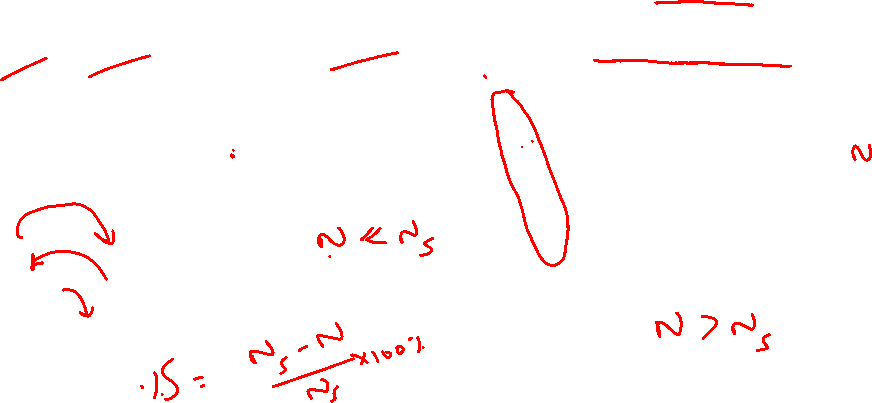 N
N << Ns
N > Ns
%S = Ns - N / Ns × 100%